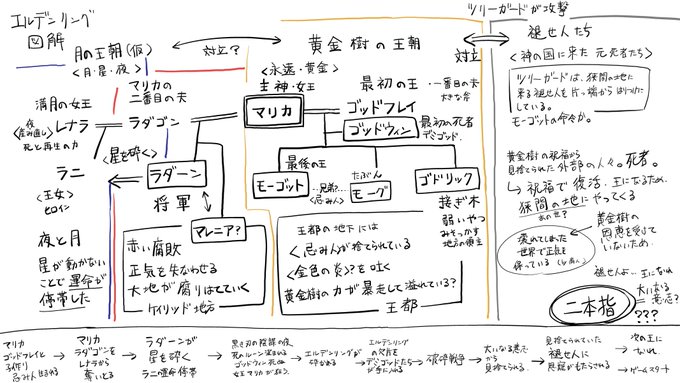 エルデンリング
図解
月の王朝(仮)
<月・星・夜>
対立?
黄金樹の王朝
対立
ツリーガードが攻撃
褪せ人たち
<神の国に来た 元死者たち>
ツリーガードは、狭間の地に
来る褪せ人を片っ端から
している。
モーゴットの命令か。
満月の女王
レナラ
死と再生の力
マリカの
二番目の夫
ラダゴン
<永遠・黄金>
主神・女王
マリカ
最初の王
・一番目の夫
ゴッドフレイ
大きな斧
ゴッドウィン
最初の死者
デミゴッド
<星を砕く>
ラダーン
将軍
ラニ
<王女>
ヒロイン
最後の王
モーゴット
…兄弟?…
<忌み人>
たぶん
モーグ
ゴドリック
接ぎ木
弱いやつ
みそっかす
地方の領主
夜と月
星が動かない
ことで運命が
停帯した
マレニア?
赤い腐敗
正気を失なわせる
大地が腐りはてていく
ケイリッド地方
王都の地下には
<忌み人が捨てられている>
<金色の炎>?を吐く
黄金樹の力が暴走して溢れている?
王都
黄金樹の祝福から
見捨てられた外部の人々。死者。
↳祝福で復活、王になるため、
狭間の地にやってくる
あの世?
黄金樹の
恩恵を受けて
いないため。
世界で正気を
保っている
褪せ人よ…王になれ
二本指
大いなる
意志?
???
マリカ
ゴッドフレイと
子作り
忌み人生まれる
→
マリカ
ラダゴンを
レナラから
奪いとる
→
ラダーンが
星を砕く
ラニ運命停帯
→
黒き刃の陰謀の夜
ゴッドウィン死ぬ
→
エルデンリングが
砕かれる
→
エルデンリング
の欠片を
デミゴッドたち
が手に入れる
→
破砕戦争
→
大いなる意志
から
見捨てられる
→
見捨てられていた
褪せ人に
祝福がもたらされる
→
次の王に
なれ
→ゲームスタート